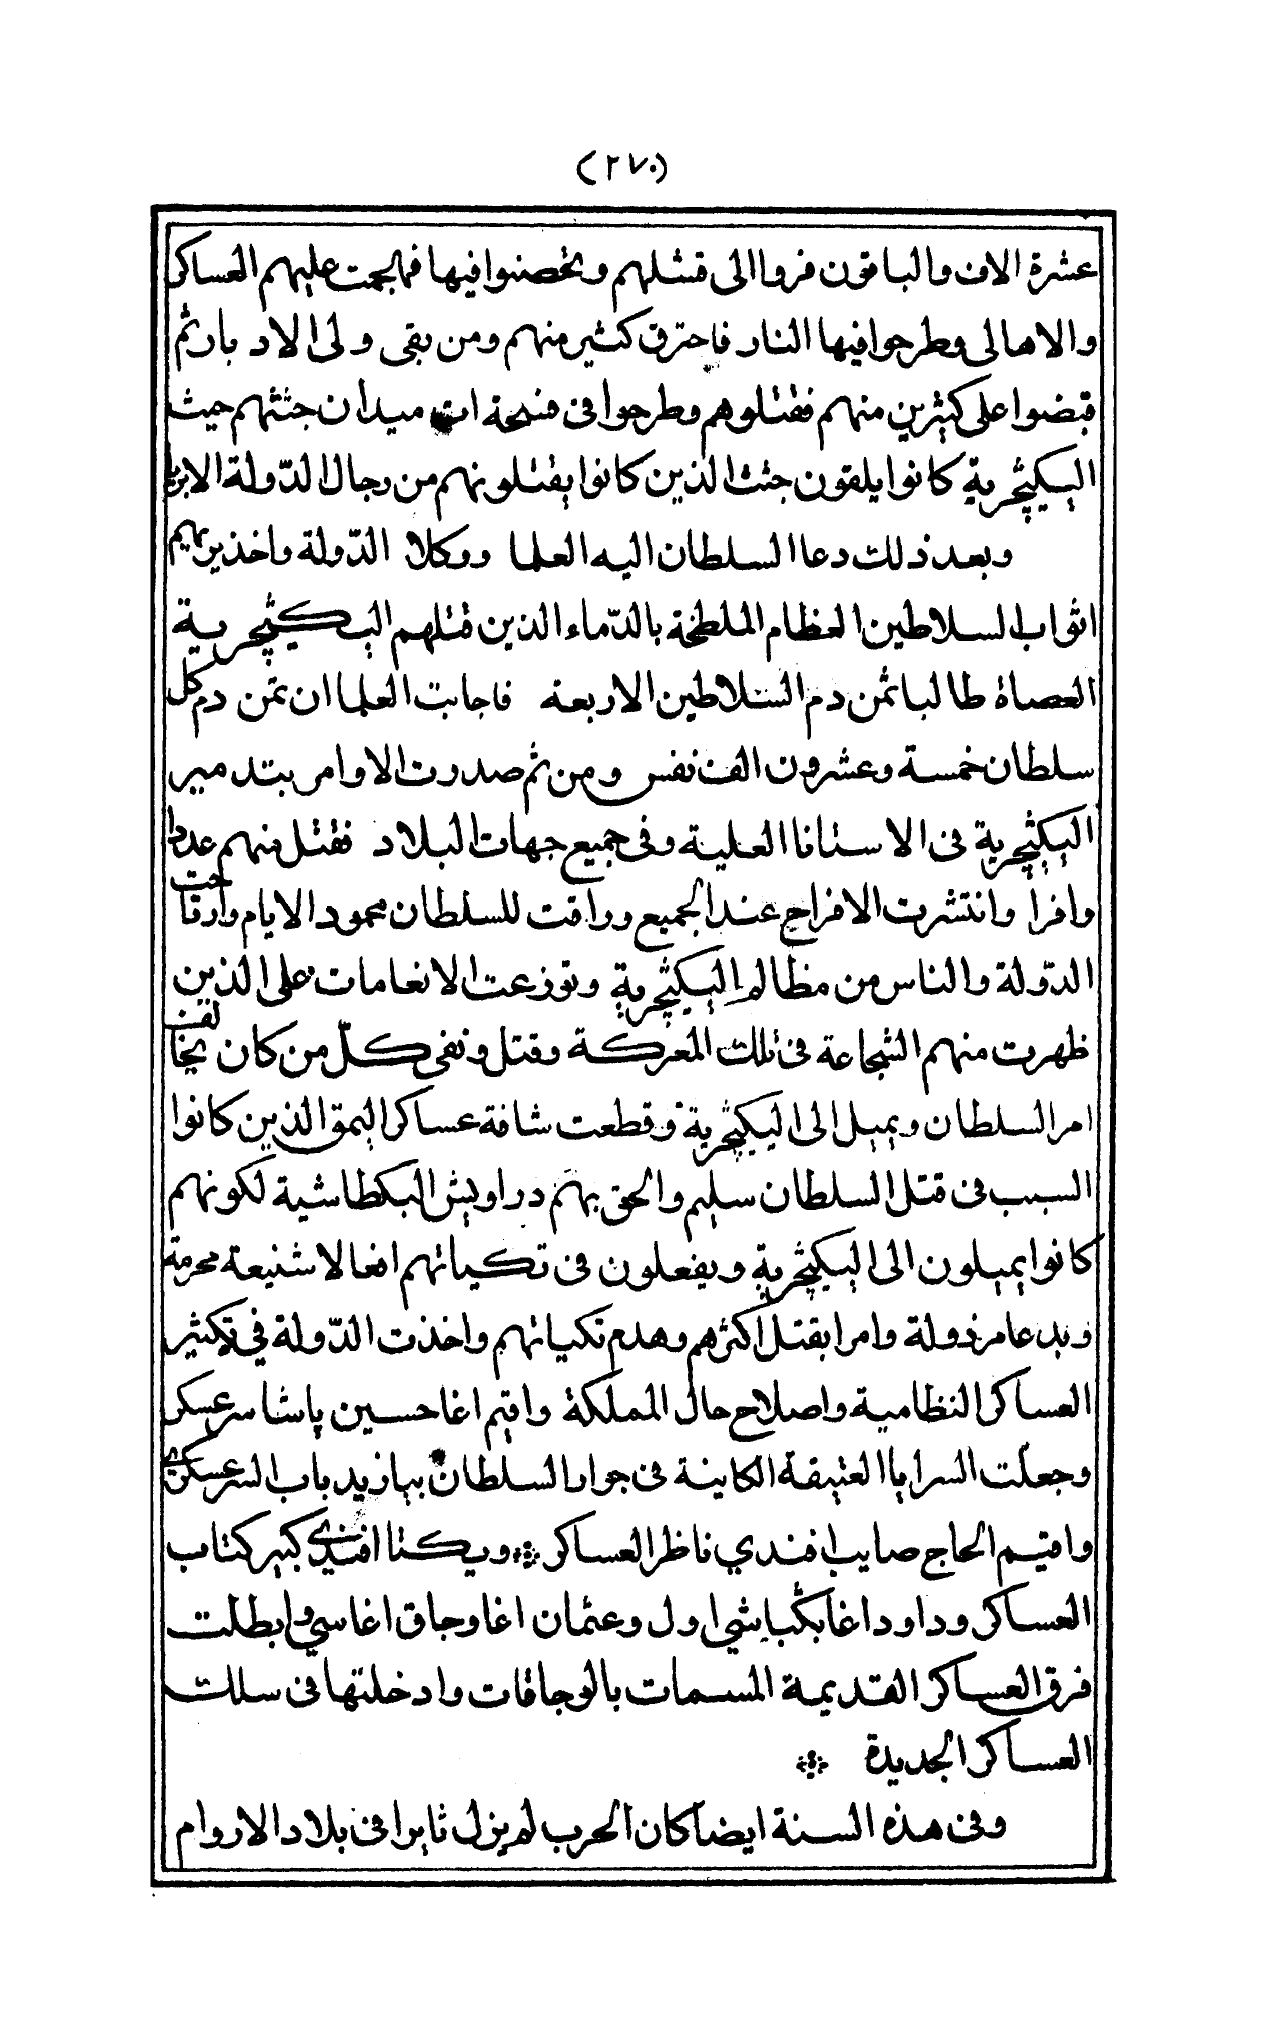 (٢٧٠)
عشرة الاف والباقون فروا الى قشلهم وتحصنوا فيها فهاجمت عليهم العساكر
والاهالى وطرحوا فيها النار فاحترق كثير منهم ومن بقى ولى الادبار ثم
قبضوا على كثيرين منهم فقتلوهم وطرحوا فى فسحة ات ميدان جثثهم حيث
اليكيثچرية كانوا يلقون جثث الذين كانوا يقتلونهم من رجال الدّولة الابريا
وبعد ذلك دعا السلطان اليه العلما ووكلا الدّولة واخذ يريهم
اثواب السلاطين العظام الملطخة بالدّماء الذين قتلهم اليكيثچرية
العصاة طالبا ثمن دم السلاطين الاربعة فاجابت العلما ان ثمن دم كل
سلطان خمسة وعشرون الف نفس ومن ثم صدرت الاوامر بتدمير
اليكيثچرية فى الاستانا العلية وفى جميع جهات البلاد فقتل منهم عددا
وافرا وانتشرت الافراح عند الجميع وراقت للسلطان محمود الايام وارتاحت
الدّولة والناس من مظالم اليكيثچرية وتوزعت الانعامات على الذين
ظهرت منهم الشجاعة فى تلك المعركة وقتل ونفى كلّ من كان يخالف
امر السلطان ويميل الى اليكيثچرية وقطعت شافة عساكر اليمق الذين كانوا
السبب فى قتل السلطان سليم والحق بهم دراويش البكطاشية لكونهم
كانوا يميلون الى اليكيثچرية ويفعلون فى تكياتهم افعالا شنيعة محرمة
دولة وامر بقتل اكثرهم وهدم تكياتهم واخذت الدّولة فى تكثير
العساكر النظامية واصلاح حال المملكة واقيم اغا حسين پاشا سر عسكر
وجعلت السرايا العتيقة الكاينة فى جوار السلطان بيازيد باب السر عسكرى
واقيم الحاج صايب افندي ناظر العساكر ❊ ويكتا افندى كبير كتاب
العساكر وداود اغا بكباشى اول وعثمان اغا وجاق اغاسي وابطلت
فرق العساكر القديمة المسمات بالوجاقات وادخلتها فى سلك
العساكر الجديدة ❊
وفى هذه السنة ايضا كان الحرب لم يزل ثايرا فى بلاد الاروام